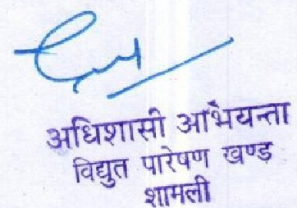 अधिशासी अभियन्ता
विद्युत पारेषण खण्ड
शामली